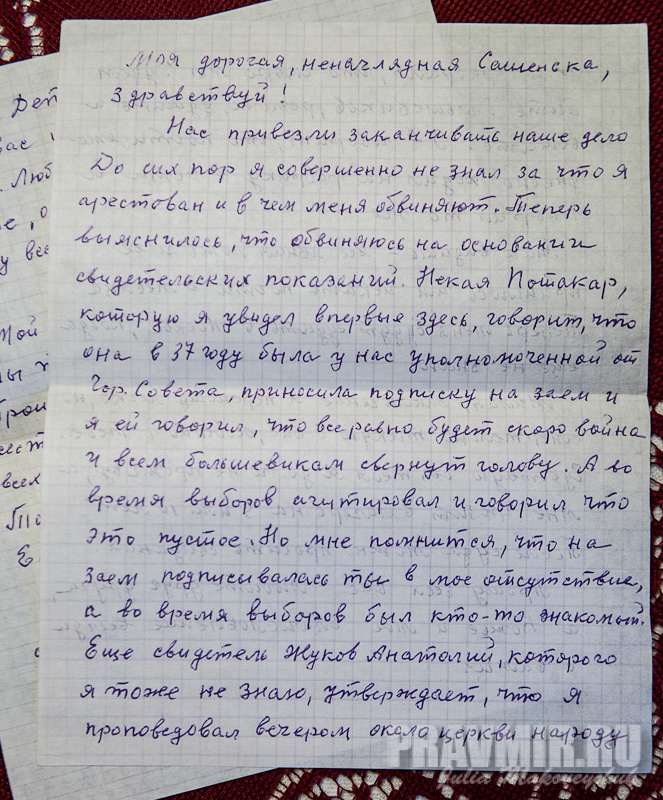 Моя дорогая, ненаглядная Сашенька,
здравствуй!
Нас привезли заканчивать наше дело
До сих пор я совершенно не знал за что я
арестован и в чем меня обвиняют. Теперь
выяснилось, что обвиняюсь на основании
свидетельских показаний. Некая Потакар,
которую я увидел впервые здесь, говорит, что
она в 37 году была у нас уполномоченной от
Гор. Совета, приносила подписку на заем и
я ей говорил, что все равно будет скоро война
и всем большевикам свернут голову. А во
время выборов агитировал и говорил что
это пустое. Но мне помнится, что на
заем подписывалась ты в мое отсутствие,
а во время выборов был кто-то знакомый.
Еще свидетель Жуков Анатолий, которого
я тоже не знаю, утверждает, что я
проповедовал вечером около церкви народу
Дет
Вас
Люб
е, о
у все
Мой
Ты
Трои
ест
всех
То
Е
PRAVMIR.RU
Yulia Makoveychuk